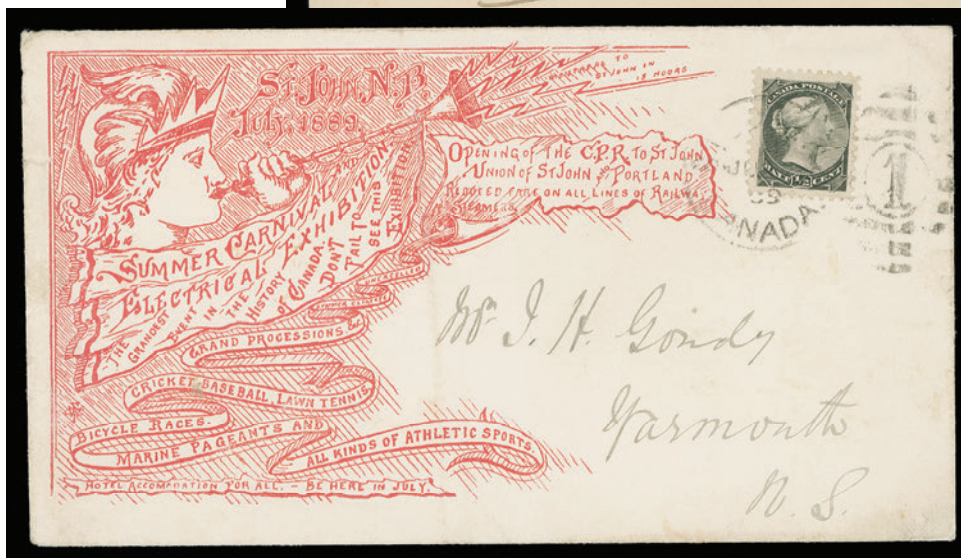 St. John, N.B.
July, 1889.
TO
ST JOHN IN
15 HOURS
OPENING OF THE C.P.R. TO ST JOHN
UNION OF ST JOHN AND PORTLAND
REDUCED FARE ON ALL LINES OF RAILWAY
STEAMERS.
SUMMER CARNIVAL AND
ELECTRICAL EXHIBITION.
THE GRANDEST
EVENT
IN
THE
HISTORY
OF CANADA.
DON'T
FAIL TO
SEE THIS
EXHIBITION
GRAND PROCESSIONS &c
CRICKET, BASEBALL, LAWN TENNIS
BICYCLE RACES.
MARINE PAGEANTS AND
ALL KINDS OF ATHLETIC SPORTS.
HOTEL ACCOMODATION FOR ALL. – BE HERE IN JULY.
CANADA POSTAGE
ONE 1/2 CENT
CANADA
1
Mr J. H. Goudy
Yarmouth
N. S.